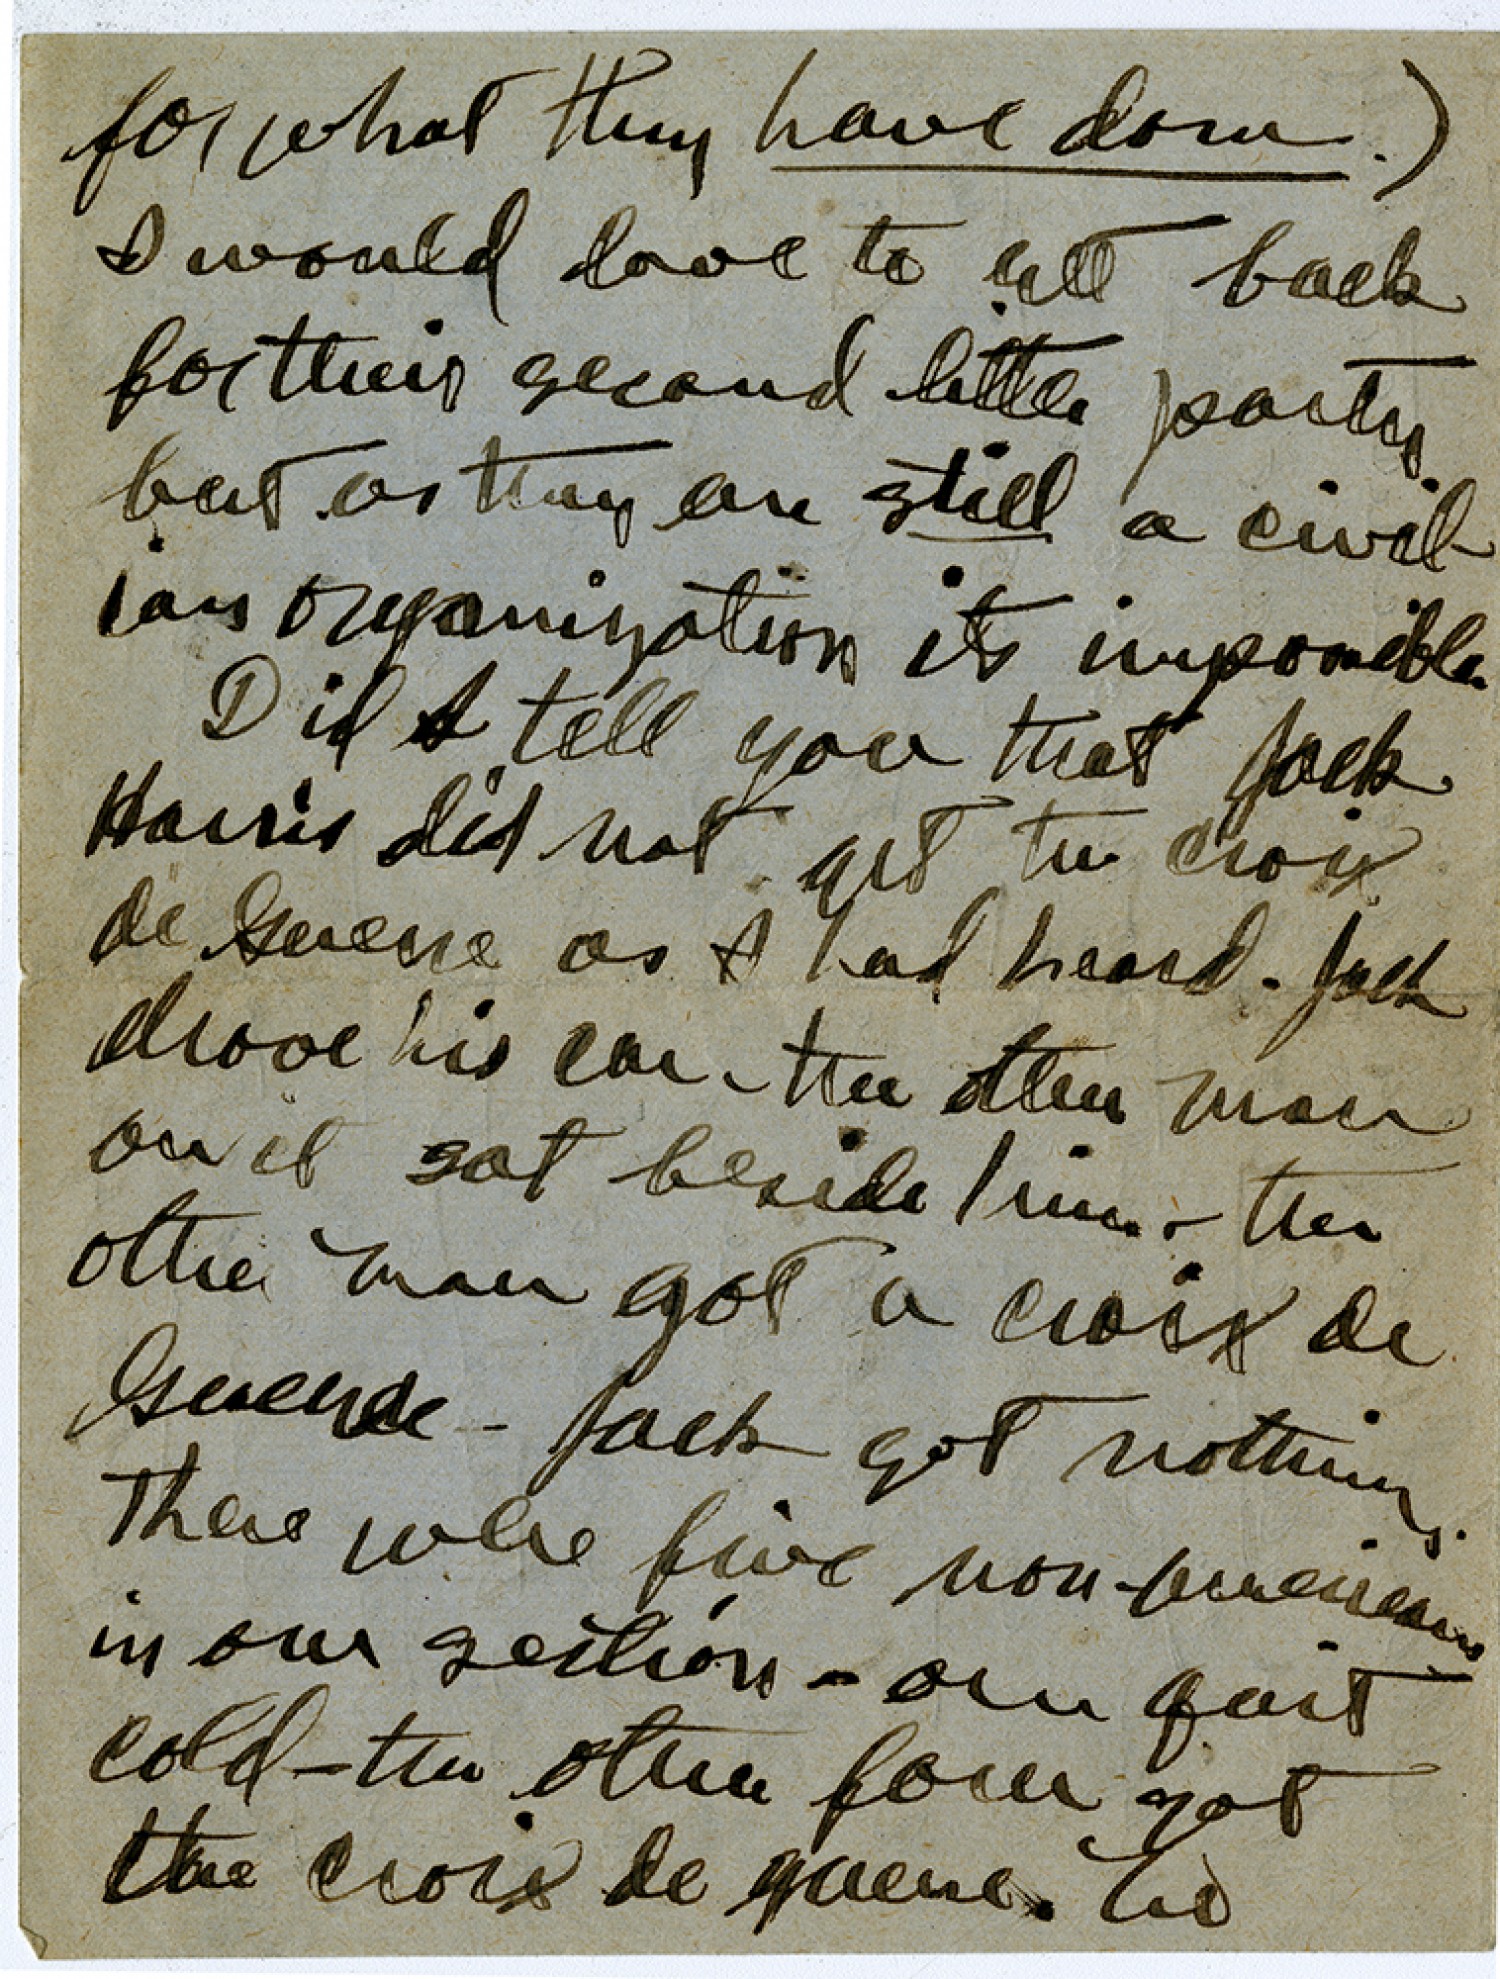 for what they have done.)
I would love to get back
for their second little party
but as they are still a civil-
ian organization its impossible.
Did I tell you that Jack
Harris did not get the croix
de Guerre as I had heard. Jack
drove his car - the other man
on it sat beside him - the
other man got a croix de
Guerre - Jack got nothing.
There were five non-
in our section - one quit
cold - the other four got
the croix de guerre.